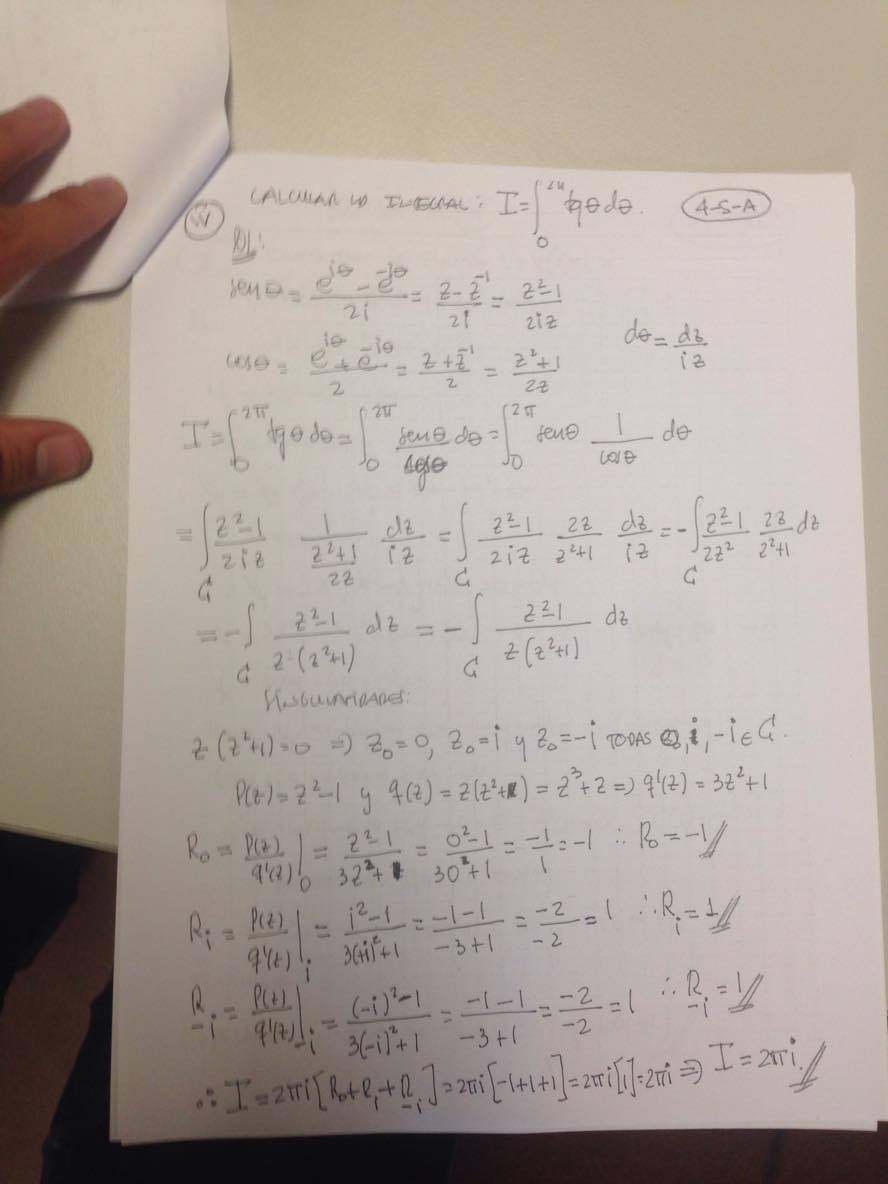 W CALCULAR LA INTEGRAL: I = ∫₀^{2π} tgθ dθ. 4-S-A
Sol:
senθ = (e^{iθ} - e^{-iθ})/2i = (z - z^{-1})/2i = (z² - 1)/2iz
dθ = dz/iz
cosθ = (e^{iθ} + e^{-iθ})/2 = (z + z^{-1})/2 = (z² + 1)/2z
I = ∫₀^{2π} tgθ dθ = ∫₀^{2π} senθ/cosθ dθ = ∫₀^{2π} senθ 1/cosθ dθ
= ∫_C (z² - 1)/2iz 1/((z² + 1)/2z) dz/iz = ∫_C (z² - 1)/2iz 2z/(z² + 1) dz/iz = -∫_C (z² - 1)/2z² 2z/(z² + 1) dz
= -∫_C (z² - 1)/(z·(z² + 1)) dz = -∫_C (z² - 1)/(z(z² + 1)) dz
SINGULARIDADES:
z(z² + 1) = 0 ⇒ z₀ = 0, z₀ = i y z₀ = -i TODAS 0, i, -i ∈ C.
P(z) = z² - 1 y q(z) = z(z² + 1) = z³ + z ⇒ q'(z) = 3z² + 1
R₀ = P(z)/q'(z)|₀ = (z² - 1)/(3z² + 1) = (0² - 1)/(30² + 1) = -1/1 = -1 ∴ R₀ = -1//
R_i = P(z)/q'(z)|_i = (i² - 1)/(3(+i)² + 1) = (-1 - 1)/(-3 + 1) = -2/-2 = 1 ∴ R_i = 1//
R_{-i} = P(z)/q'(z)|_{-i} = ((-i)² - 1)/(3(-i)² + 1) = (-1 - 1)/(-3 + 1) = -2/-2 = 1 ∴ R_{-i} = 1//
∴ I = 2πi[R₀ + R_i + R_{-i}] = 2πi[-1 + 1 + 1] = 2πi[1] = 2πi ⇒ I = 2πi.//